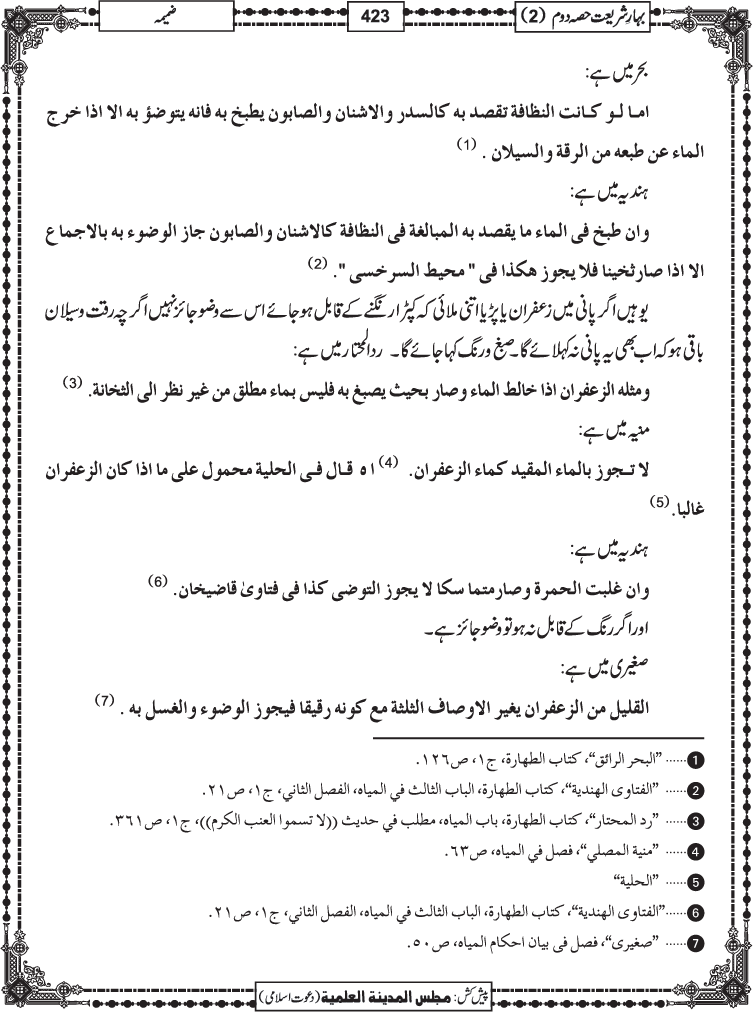 بہارِشریعت حصہ دوم (2)
423
ضمیمہ
بحر میں ہے:
امـا لـو کـانت النظافۃ تقصد به کالسدر والاشنان والصابون یطبخ به فانه یتوضؤ به الا اذا خرج
الماء عن طبعه من الرقۃ والسیلان . (1)
ہندیہ میں ہے:
وان طبخ فی الماء ما یقصد به المبالغۃ فی النظافۃ کالاشنان والصابون جاز الوضوء به بالاجماع
الا اذا صارثخینا فلا یجوز هکذا فی " محیط السرخسی ". (2)
یوہیں اگر پانی میں زعفران یا پڑیا اتنی ملائی کہ کپڑا رنگنے کے قابل ہوجائے اس سے وضو جائز نہیں اگرچہ رقت وسیلان
باقی ہو کہ اب بھی یہ پانی نہ کہلائے گا۔ صبغ ورنگ کہا جائے گا۔ ردالمحتار میں ہے:
ومثله الزعفران اذا خالط الماء وصار بحیث یصبغ به فلیس بماء مطلق من غیر نظر الی الثخانۃ. (3)
منیہ میں ہے:
لا تـجوز بالماء المقید کماء الزعفران. (4) ا ه قـال فـی الحلیۃ محمول علی ما اذا کان الزعفران
غالبا. (5)
ہندیہ میں ہے:
وان غلبت الحمرۃ وصارمتما سکا لا یجوز التوضی کذا فی فتاویٰ قاضیخان. (6)
اور اگر رنگ کے قابل نہ ہو تو وضو جائز ہے۔
صغیری میں ہے:
القلیل من الزعفران یغیر الاوصاف الثلثۃ مع کونه رقیقا فیجوز الوضوء والغسل به . (7)
1 ...... ”البحر الرائق“، کتاب الطهارۃ، ج۱، ص۱۲٦.
2 ...... ”الفتاوی الهندیۃ“، کتاب الطهارۃ، الباب الثالث في المیاه، الفصل الثاني، ج۱، ص۲۱.
3 ...... ”رد المحتار“، کتاب الطهارۃ، باب المیاه، مطلب في حدیث ((لا تسموا العنب الکرم))، ج۱، ص۳٦۱.
4 ...... ”منیۃ المصلي“، فصل في المیاه، ص٦۳.
5 ...... ”الحلیۃ“
6 ......”الفتاوی الهندیۃ“، کتاب الطهارۃ، الباب الثالث في المیاه، الفصل الثاني، ج۱، ص۲۱.
7 ...... ”صغیری“، فصل فی بیان احکام المیاه، ص۵۰.
پیش کش: مجلس المدینۃ العلمیۃ (دعوت اسلامی)